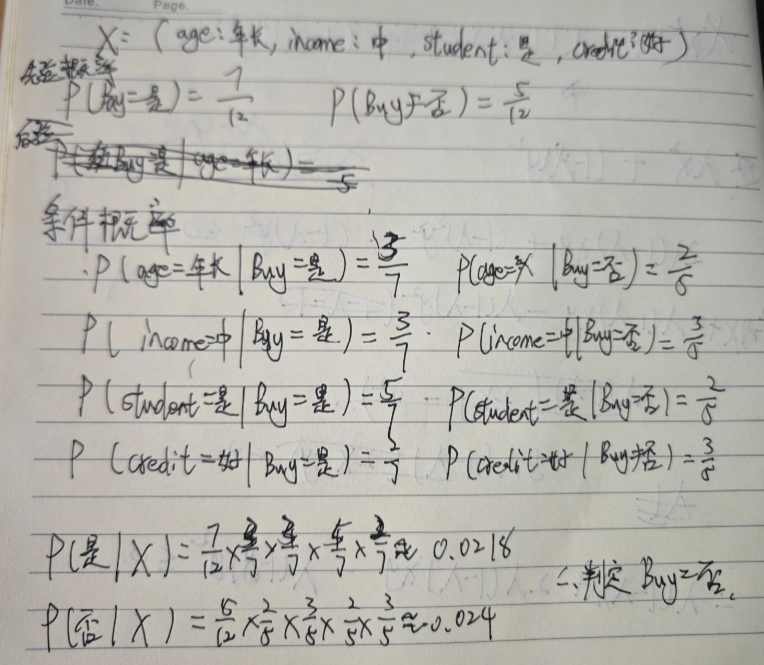 Date. Page.
X= (age:年长, income:中, student:是, credit:好)
先验概率
P(Buy=是)= 7/12 P(Buy=否)= 5/12
后验
条件概率
P(age=年长|Buy=是)= 3/7 P(age= |Buy=否)= 2/5
P(income=中|Buy=是)= 3/7 P(income=中|Buy=否)= 3/5
P(student=是|Buy=是)= 5/7 P(student=是|Buy=否)= 2/5
P(credit=好|Buy=是)= P(credit=好|Buy=否)= 3/5
P(是|X)= 7/12 × × × × ≈ 0.0218
∴判定 Buy=否.
P(否|X)= 5/12 × 2/5 × 3/5 × 2/5 × 3/5 ≈ 0.024